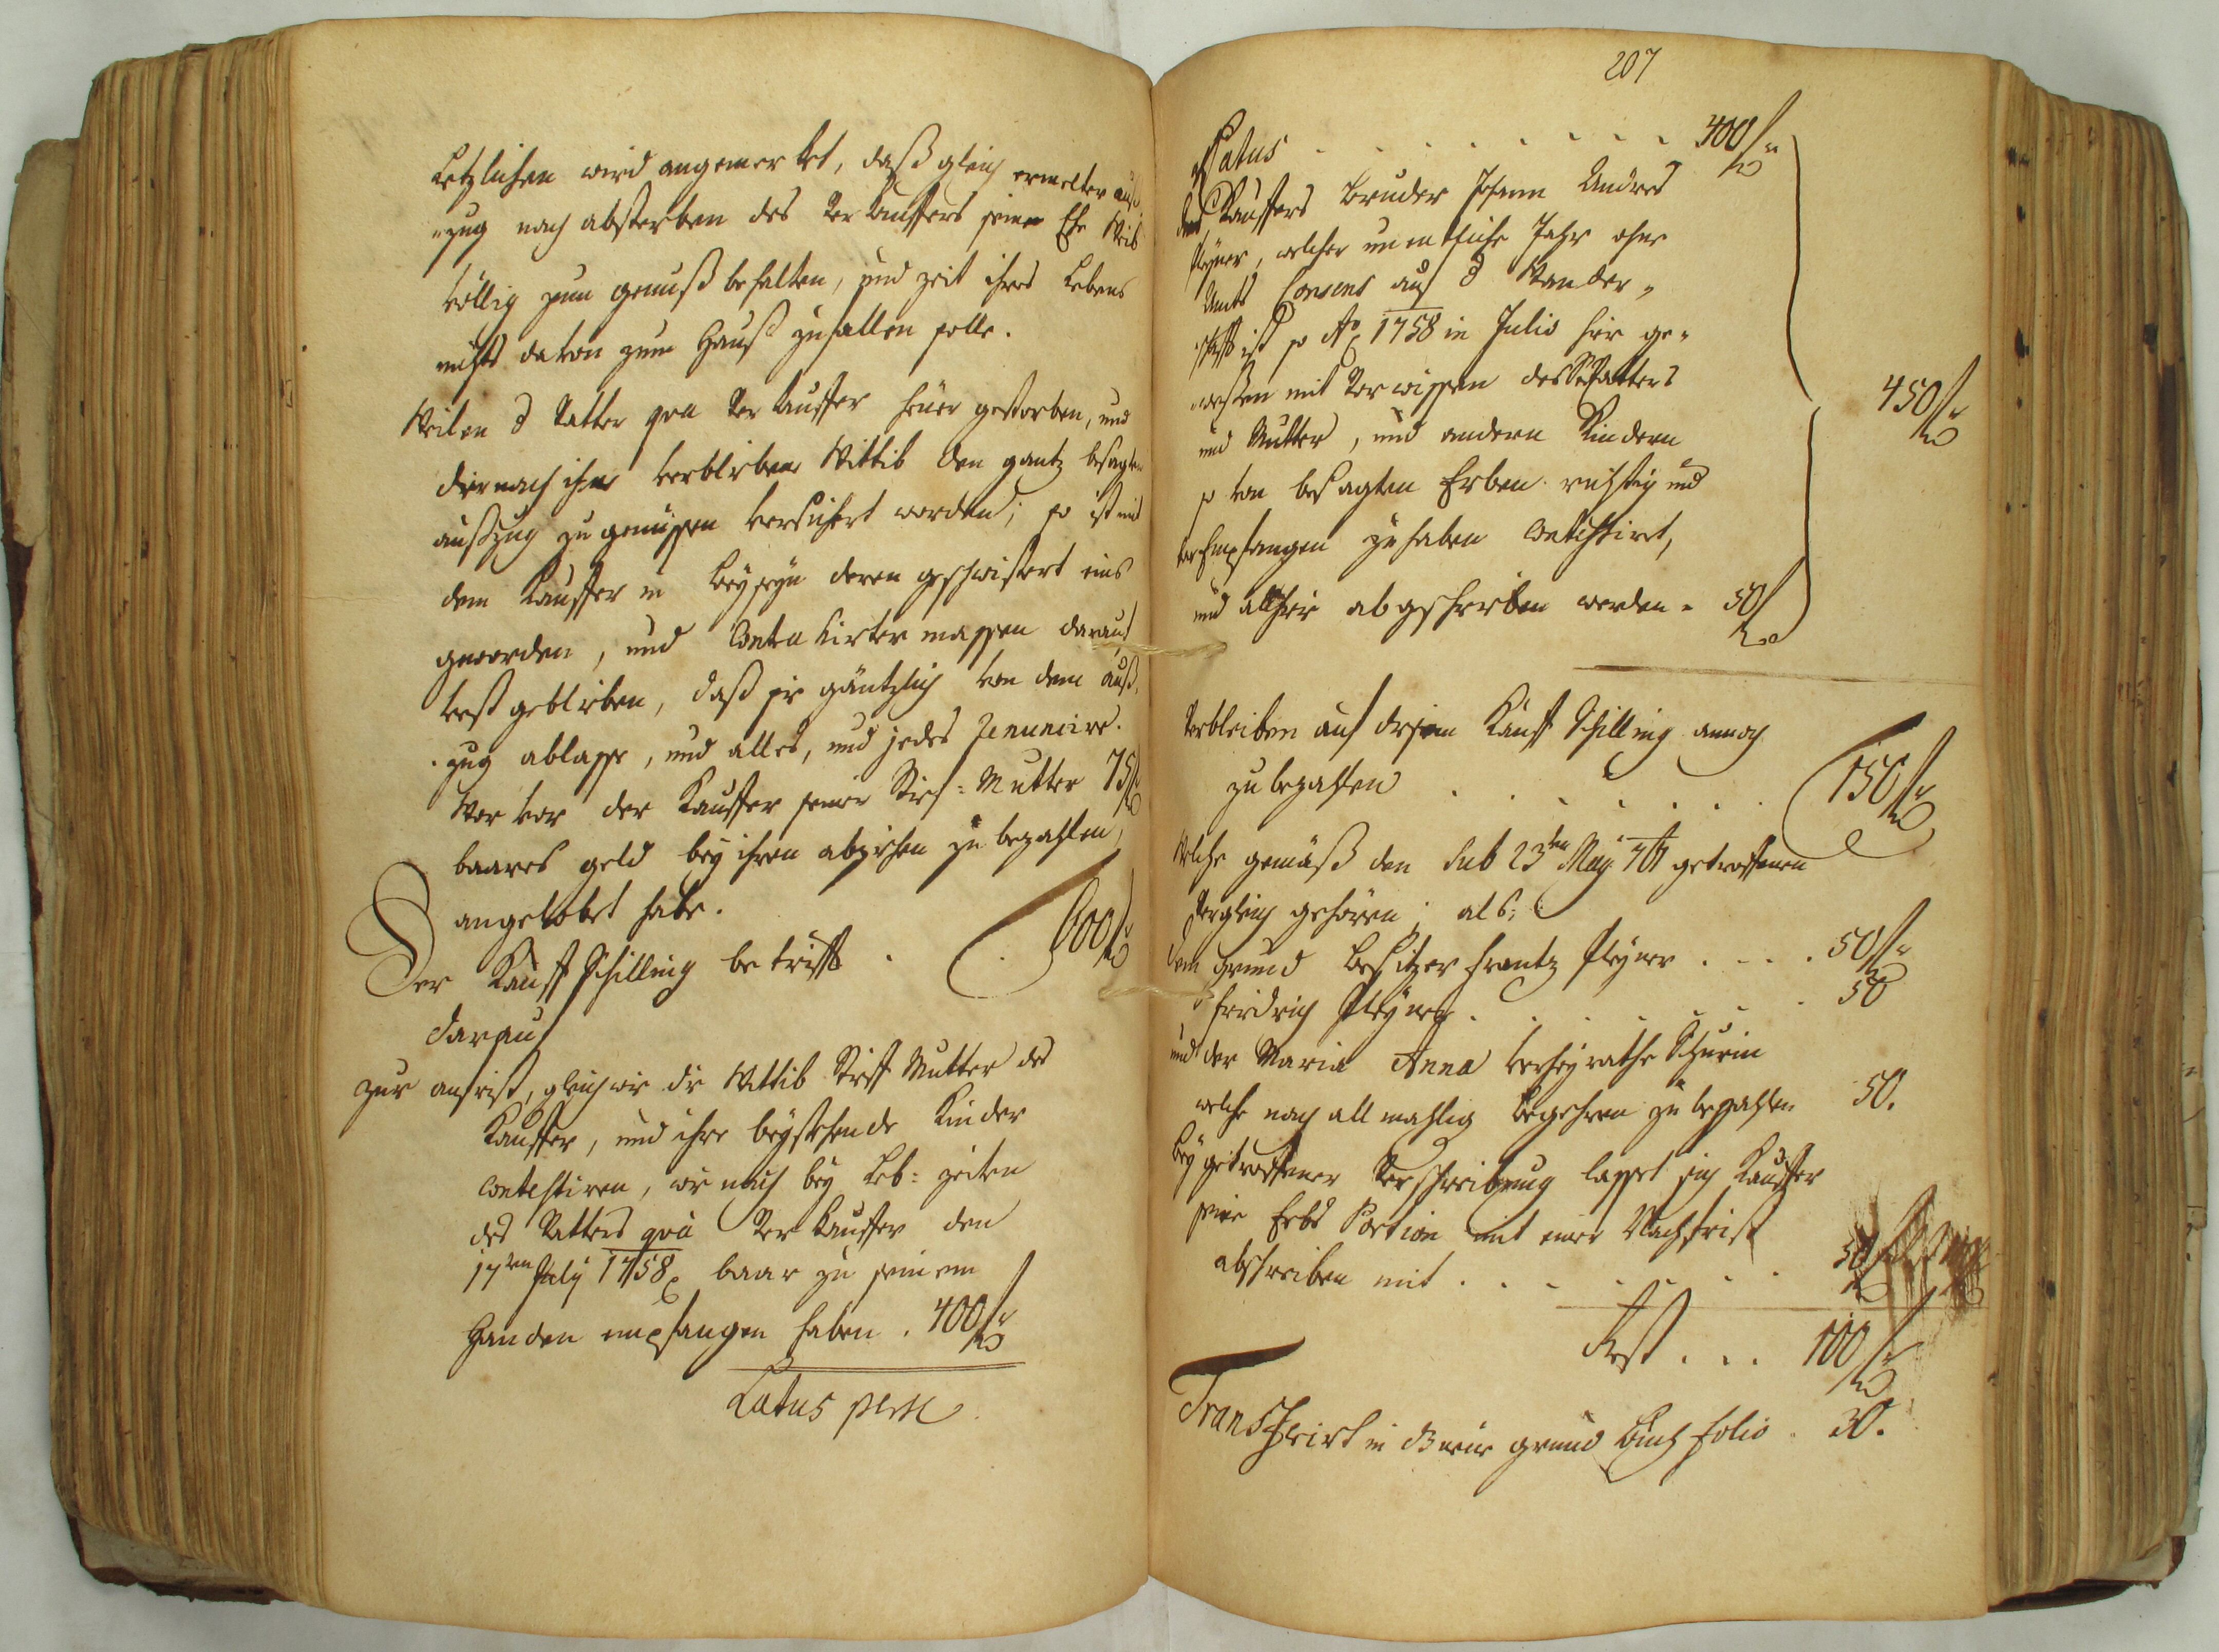 Letzlichen wird angemerket, daß gleich ermelter auß„
„zug nach absterben des Verkauffers seine Ehe Weib
völlig zum genuß behalten, und zeit ihres Lebens
nichts davon zum Hauß zufallen solle.
Weilen d Vatter qva Verkauffer heüer gestorben, und
dernach ihme verbliebene Wittib den gantz besagten
außzug zu genüssen versichert worden; so ist mit
dem Kauffer in beyseyn deren geschwistert eins
geworden, und massen darauf
vest geblieben, daß sie gäntzlich von dem auß„
„zug ablasse, und alles, und jedes Renuncire.
Wor vor der Kauffer seiner Stief-Mutter 75 f
baares geld bey ihren abziehen zu bezahlen
angelobet habe.
Der Kauff Schilling betrifft . 600 f
darauf
zur anfrist, gleichwie die Wittib Stieff Mutter des
Kauffer, und ihre beystehende Kinder
contestiren, wie noch bey Leb-zeiten
des Vatters qvà Verkauffer den
17ten July 1758 baar zu seinem
Handen empfangen haben . 400 f
Latus perse
207
Latus . . . . . . . . 400 f
des Kauffers bruder Johann Andres
Pleyner, welcher unentliche Jahr ohne
Amts Consens auf d Wander„
„schafft ist so Aō 1758 in Julio hier ge„
„wesen mit Vorwissen des Vatters
und Mutter, und andern Kindern
so von besagten Erben richtig und
empfangen zu haben contestiret,
und allhier abgeschrieben werden - 50 f
450 f
Verbleiben auf diesen Kauff Schilling annoch
zu bezahlen . . . . . . . 150 f
Welche gemäß den sub 23ten May getroffenen
Vergleich gehören; als:
dem grund besitzer Frantz Pleyner . . . . 50 f
Fridrich Pleyner . . . . . . 50
und der Maria Anna verheyrathe
welche nach allmahlig begehren zu bezahlen 50.
bey getroffener Verschreibung lasset sich Kauffer
seine Erbs Portion mit einer Nachfrist
abschreiben mit . . . . . . . 50 f
Rest . . . 100 f
Transferirt in Neüe grund buch folio . 30.